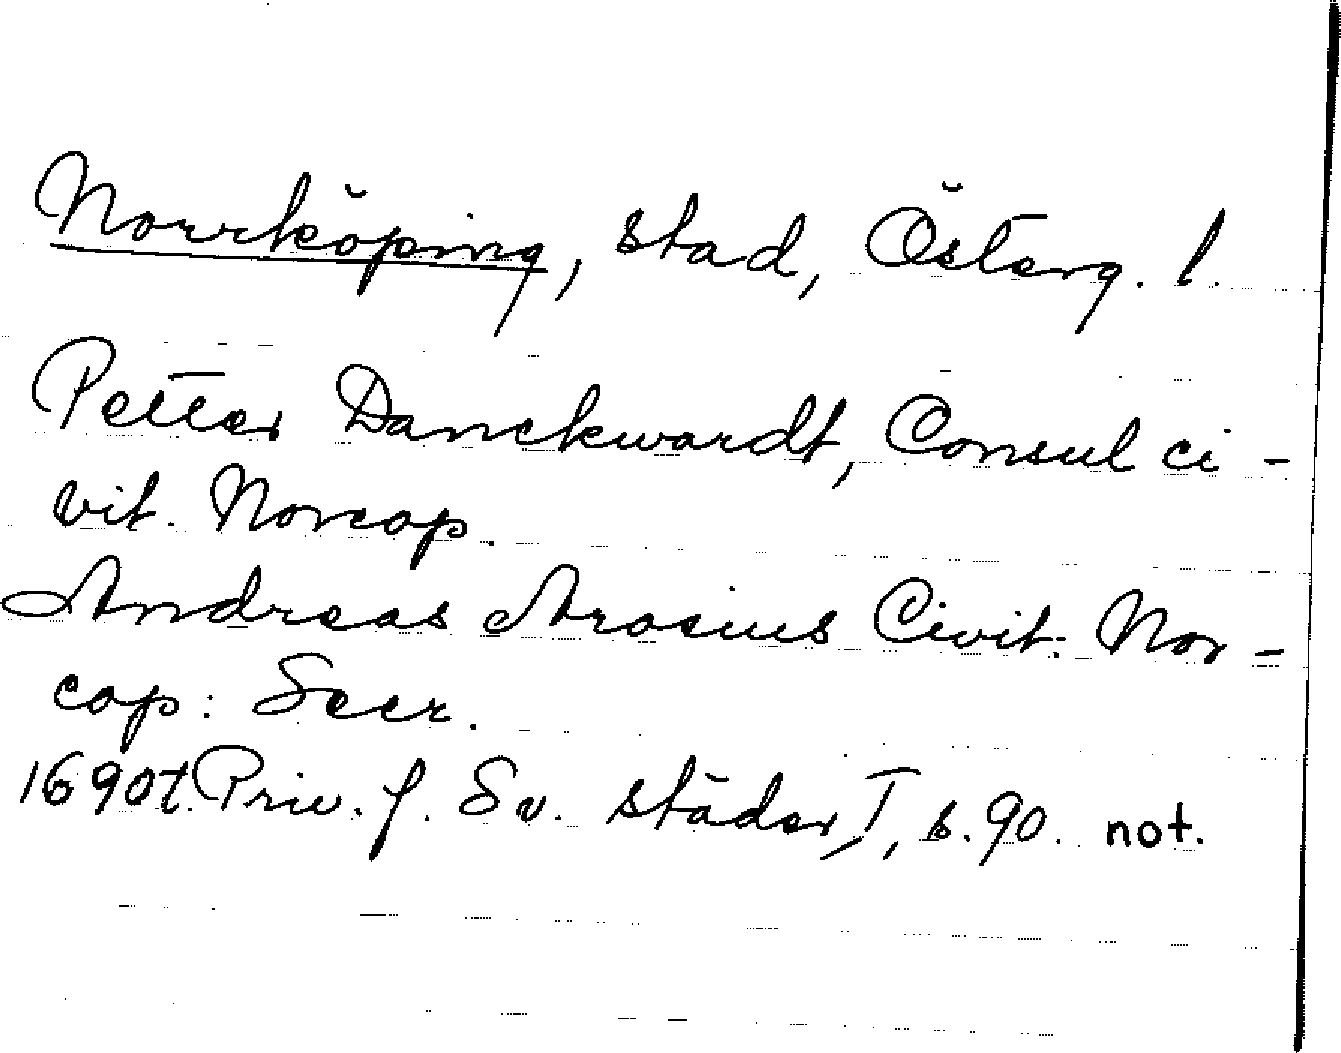 Norrköping, stad, Österg. l.
Petter Danckwardt, Consul ci-
vit. Norcop.
Andreas Arosius Civit: Nor-
cop: Secr.
1690t. Priv. f. Sv. städer, I, s. 90. not.